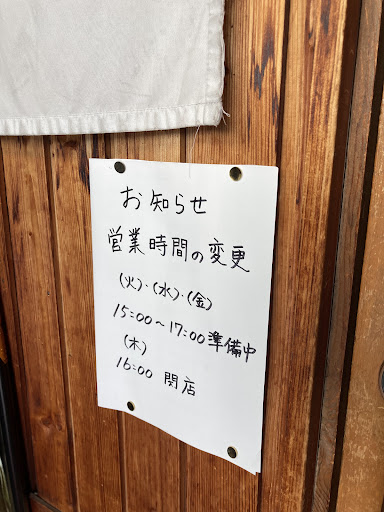 お知らせ
営業時間の変更
(火)・(水)・(金)
15:00〜17:00 準備中
(木)
16:00 閉店